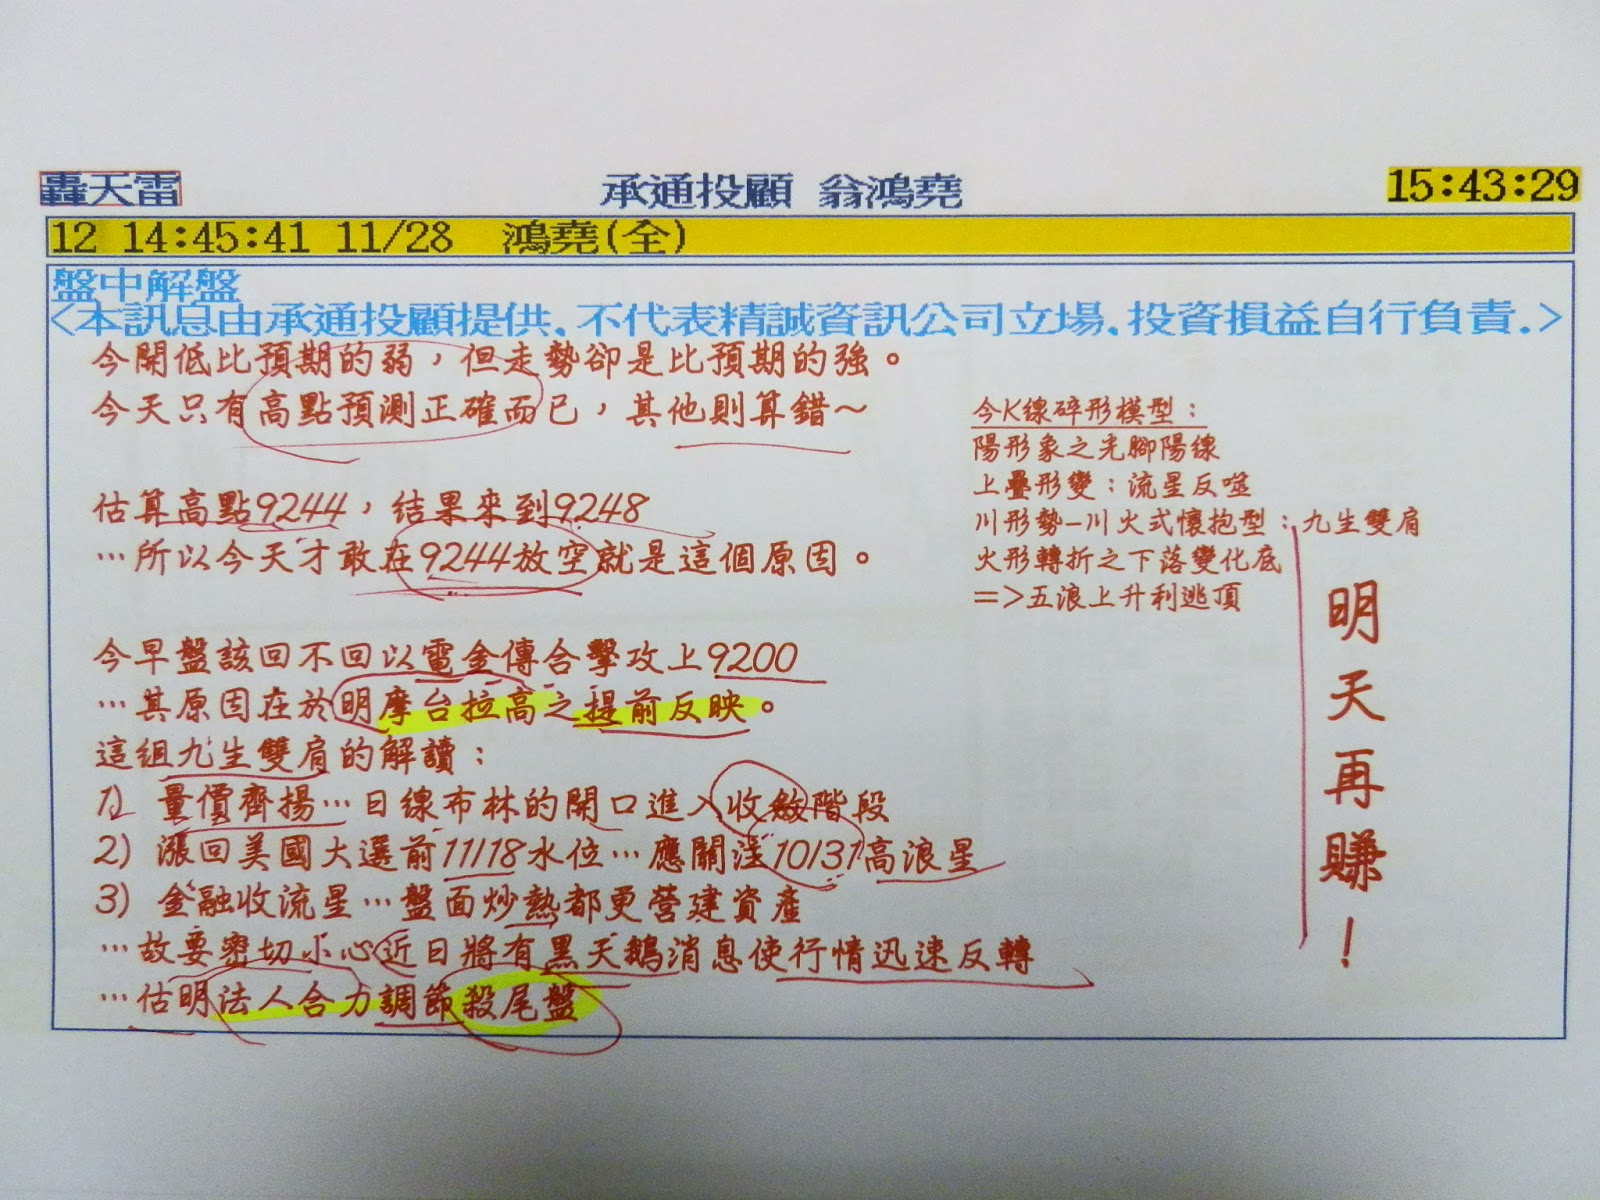 轟天雷
承通投顧 翁鴻堯
15:43:29
12 14:45:41 11/28 鴻堯(全)
盤中解盤
<本訊息由承通投顧提供,不代表精誠資訊公司立場,投資損益自行負責.>
今開低比預期的弱，但走勢卻是比預期的強。
今天只有高點預測正確而已，其他則算錯～
估算高點9244，結果來到9248
…所以今天才敢在9244放空就是這個原因。
今早盤該回不回以電金傳合擊攻上9200
…其原因在於明摩台拉高之提前反映。
這組九生雙肩的解讀：
1) 量價齊揚…日線布林的開口進入收斂階段
2) 漲回美國大選前11/18水位…應關注10/31高浪星
3) 金融收流星…盤面炒熱都更營建資產
…故要密切小心近日將有黑天鵝消息使行情迅速反轉
…估明法人合力調節殺尾盤
今K線碎形模型：
陽形象之光腳陽線
上疊形變：流星反噬
川形勢-川火式懷抱型：九生雙肩
火形轉折之下落變化底
=>五浪上升利逃頂
明天再賺！